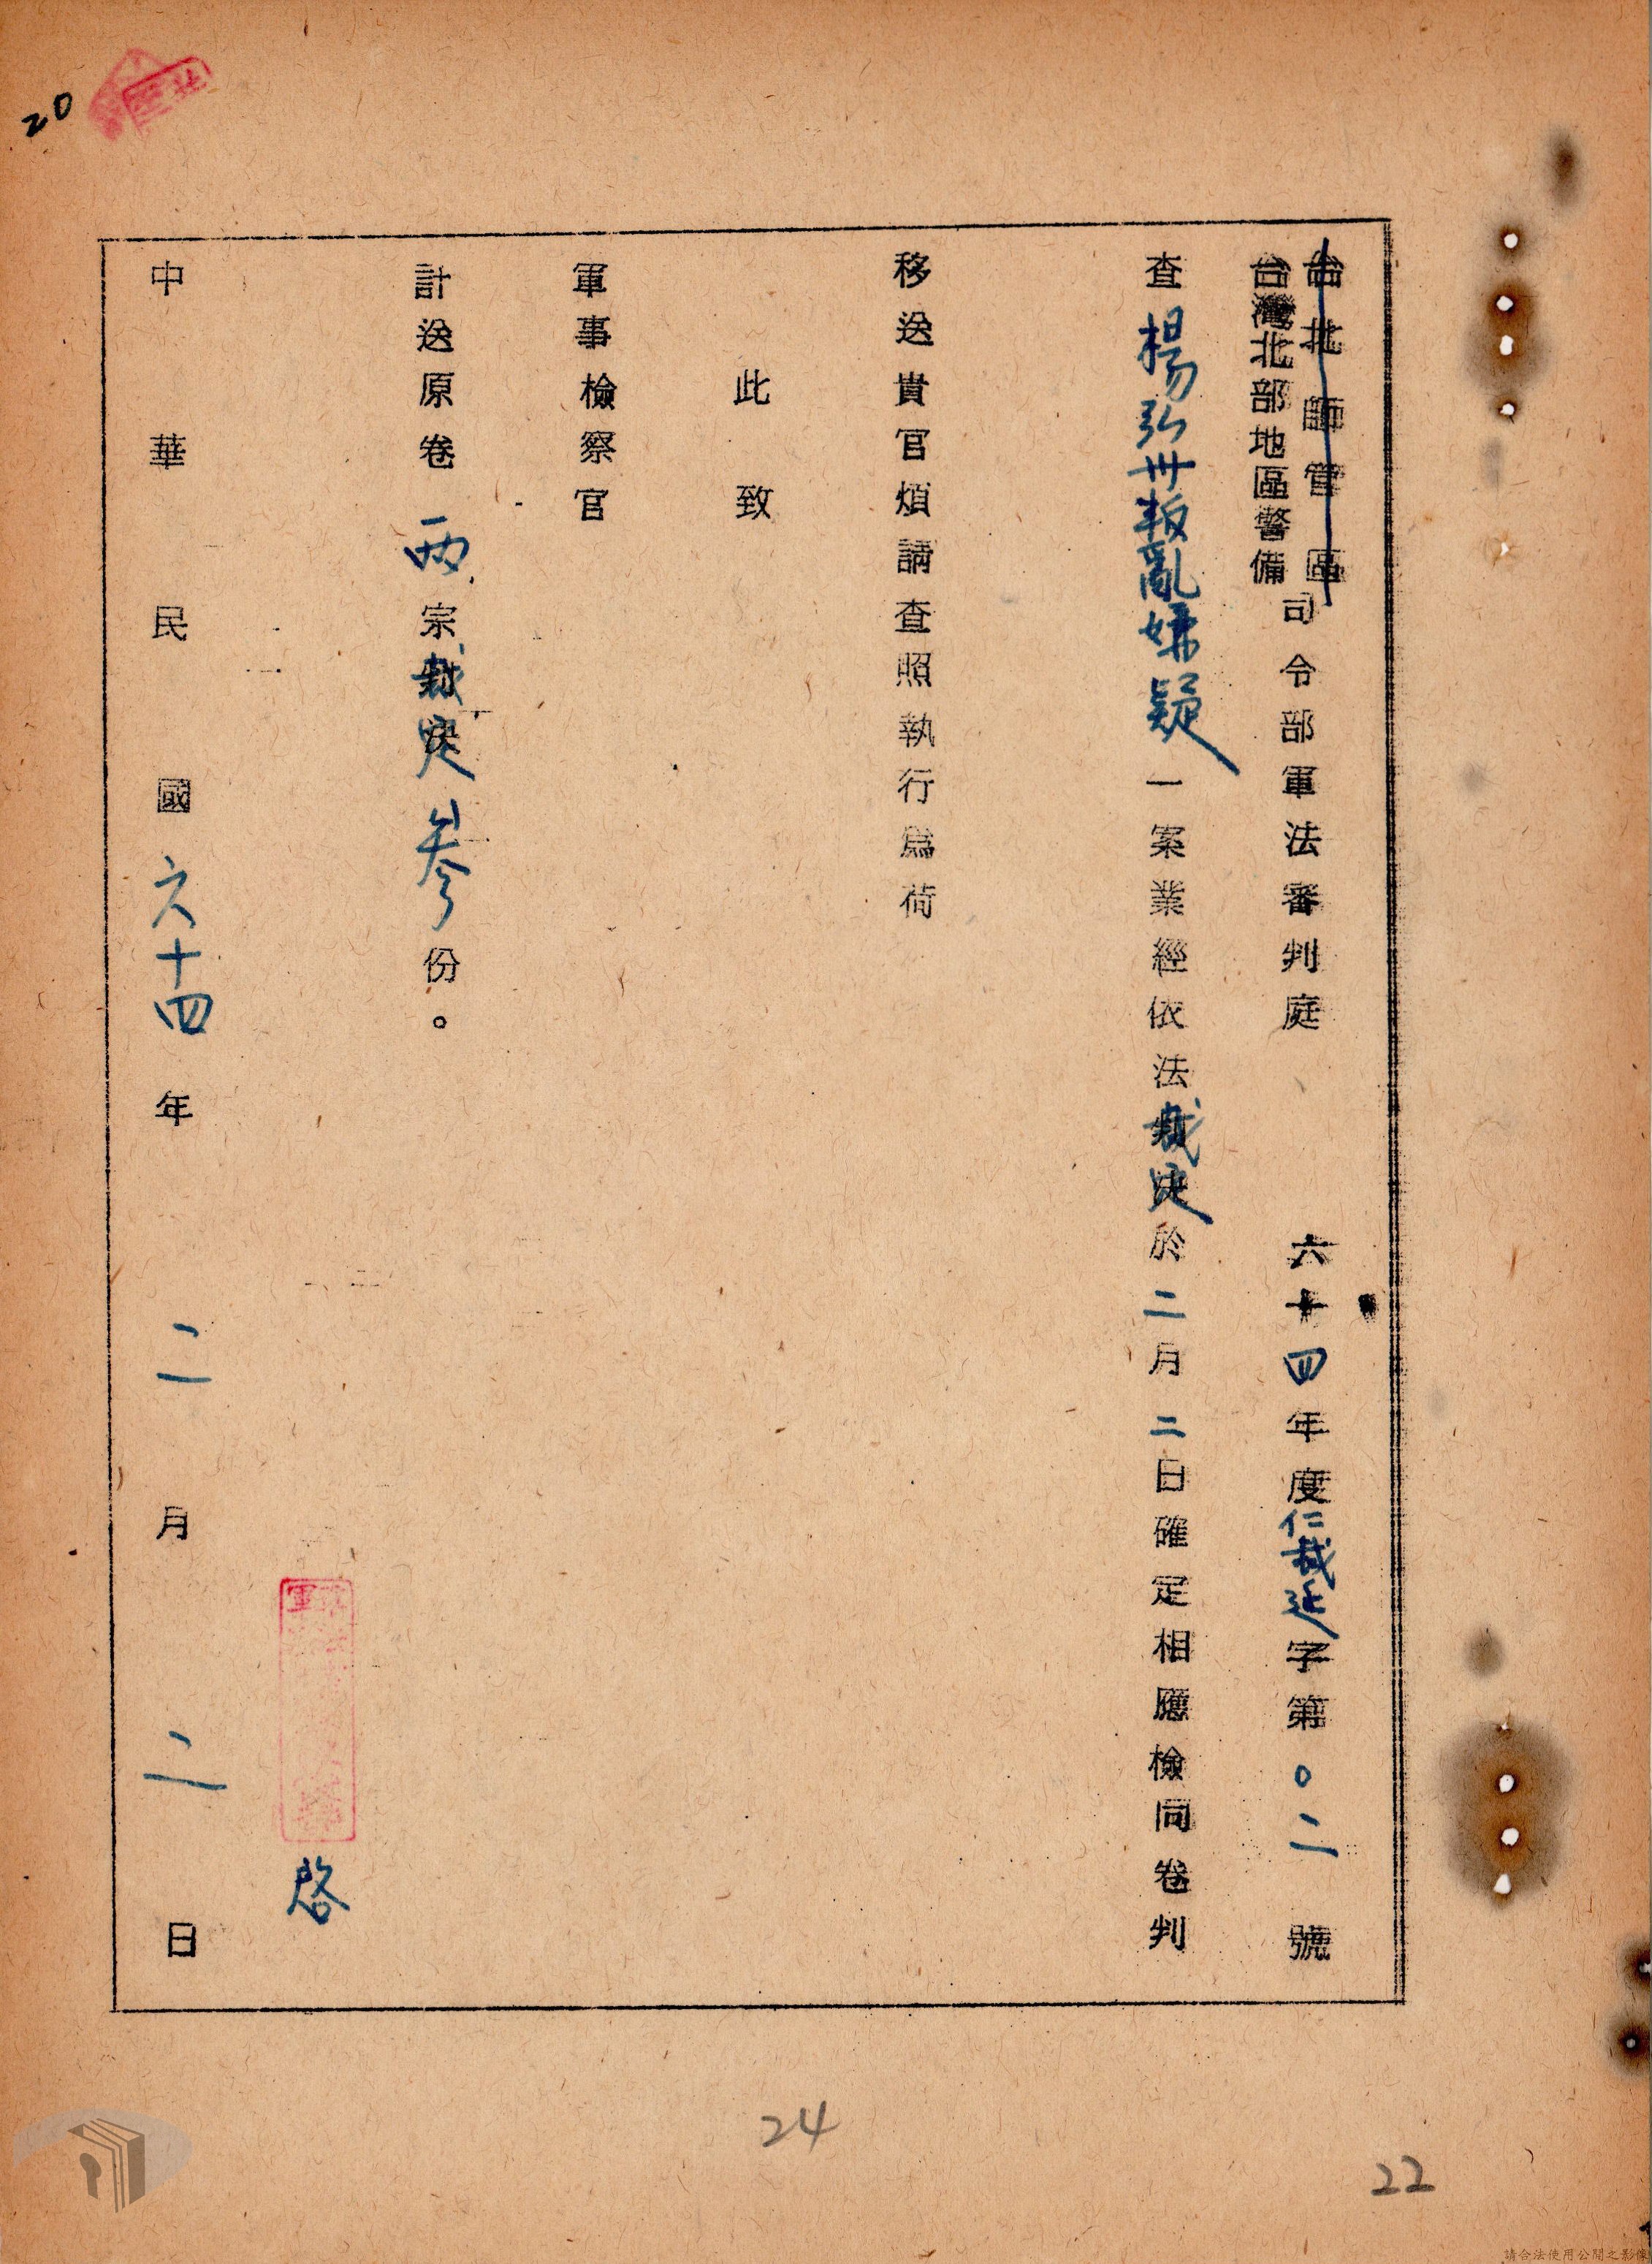 台北師管區
台灣北部地區警備司令部軍法審判庭 六十四年度仁裁述字第0二號
查楊弘卅叛亂嫌疑一案業經依法裁定於二月二日確定相應檢同卷判
移送貴官煩請查照執行為荷
此致
軍事檢察官
計送原卷兩宗裁定叁份。
啓
中華民國六十四年二月二日
20
24
22
請合法使用公開之影像